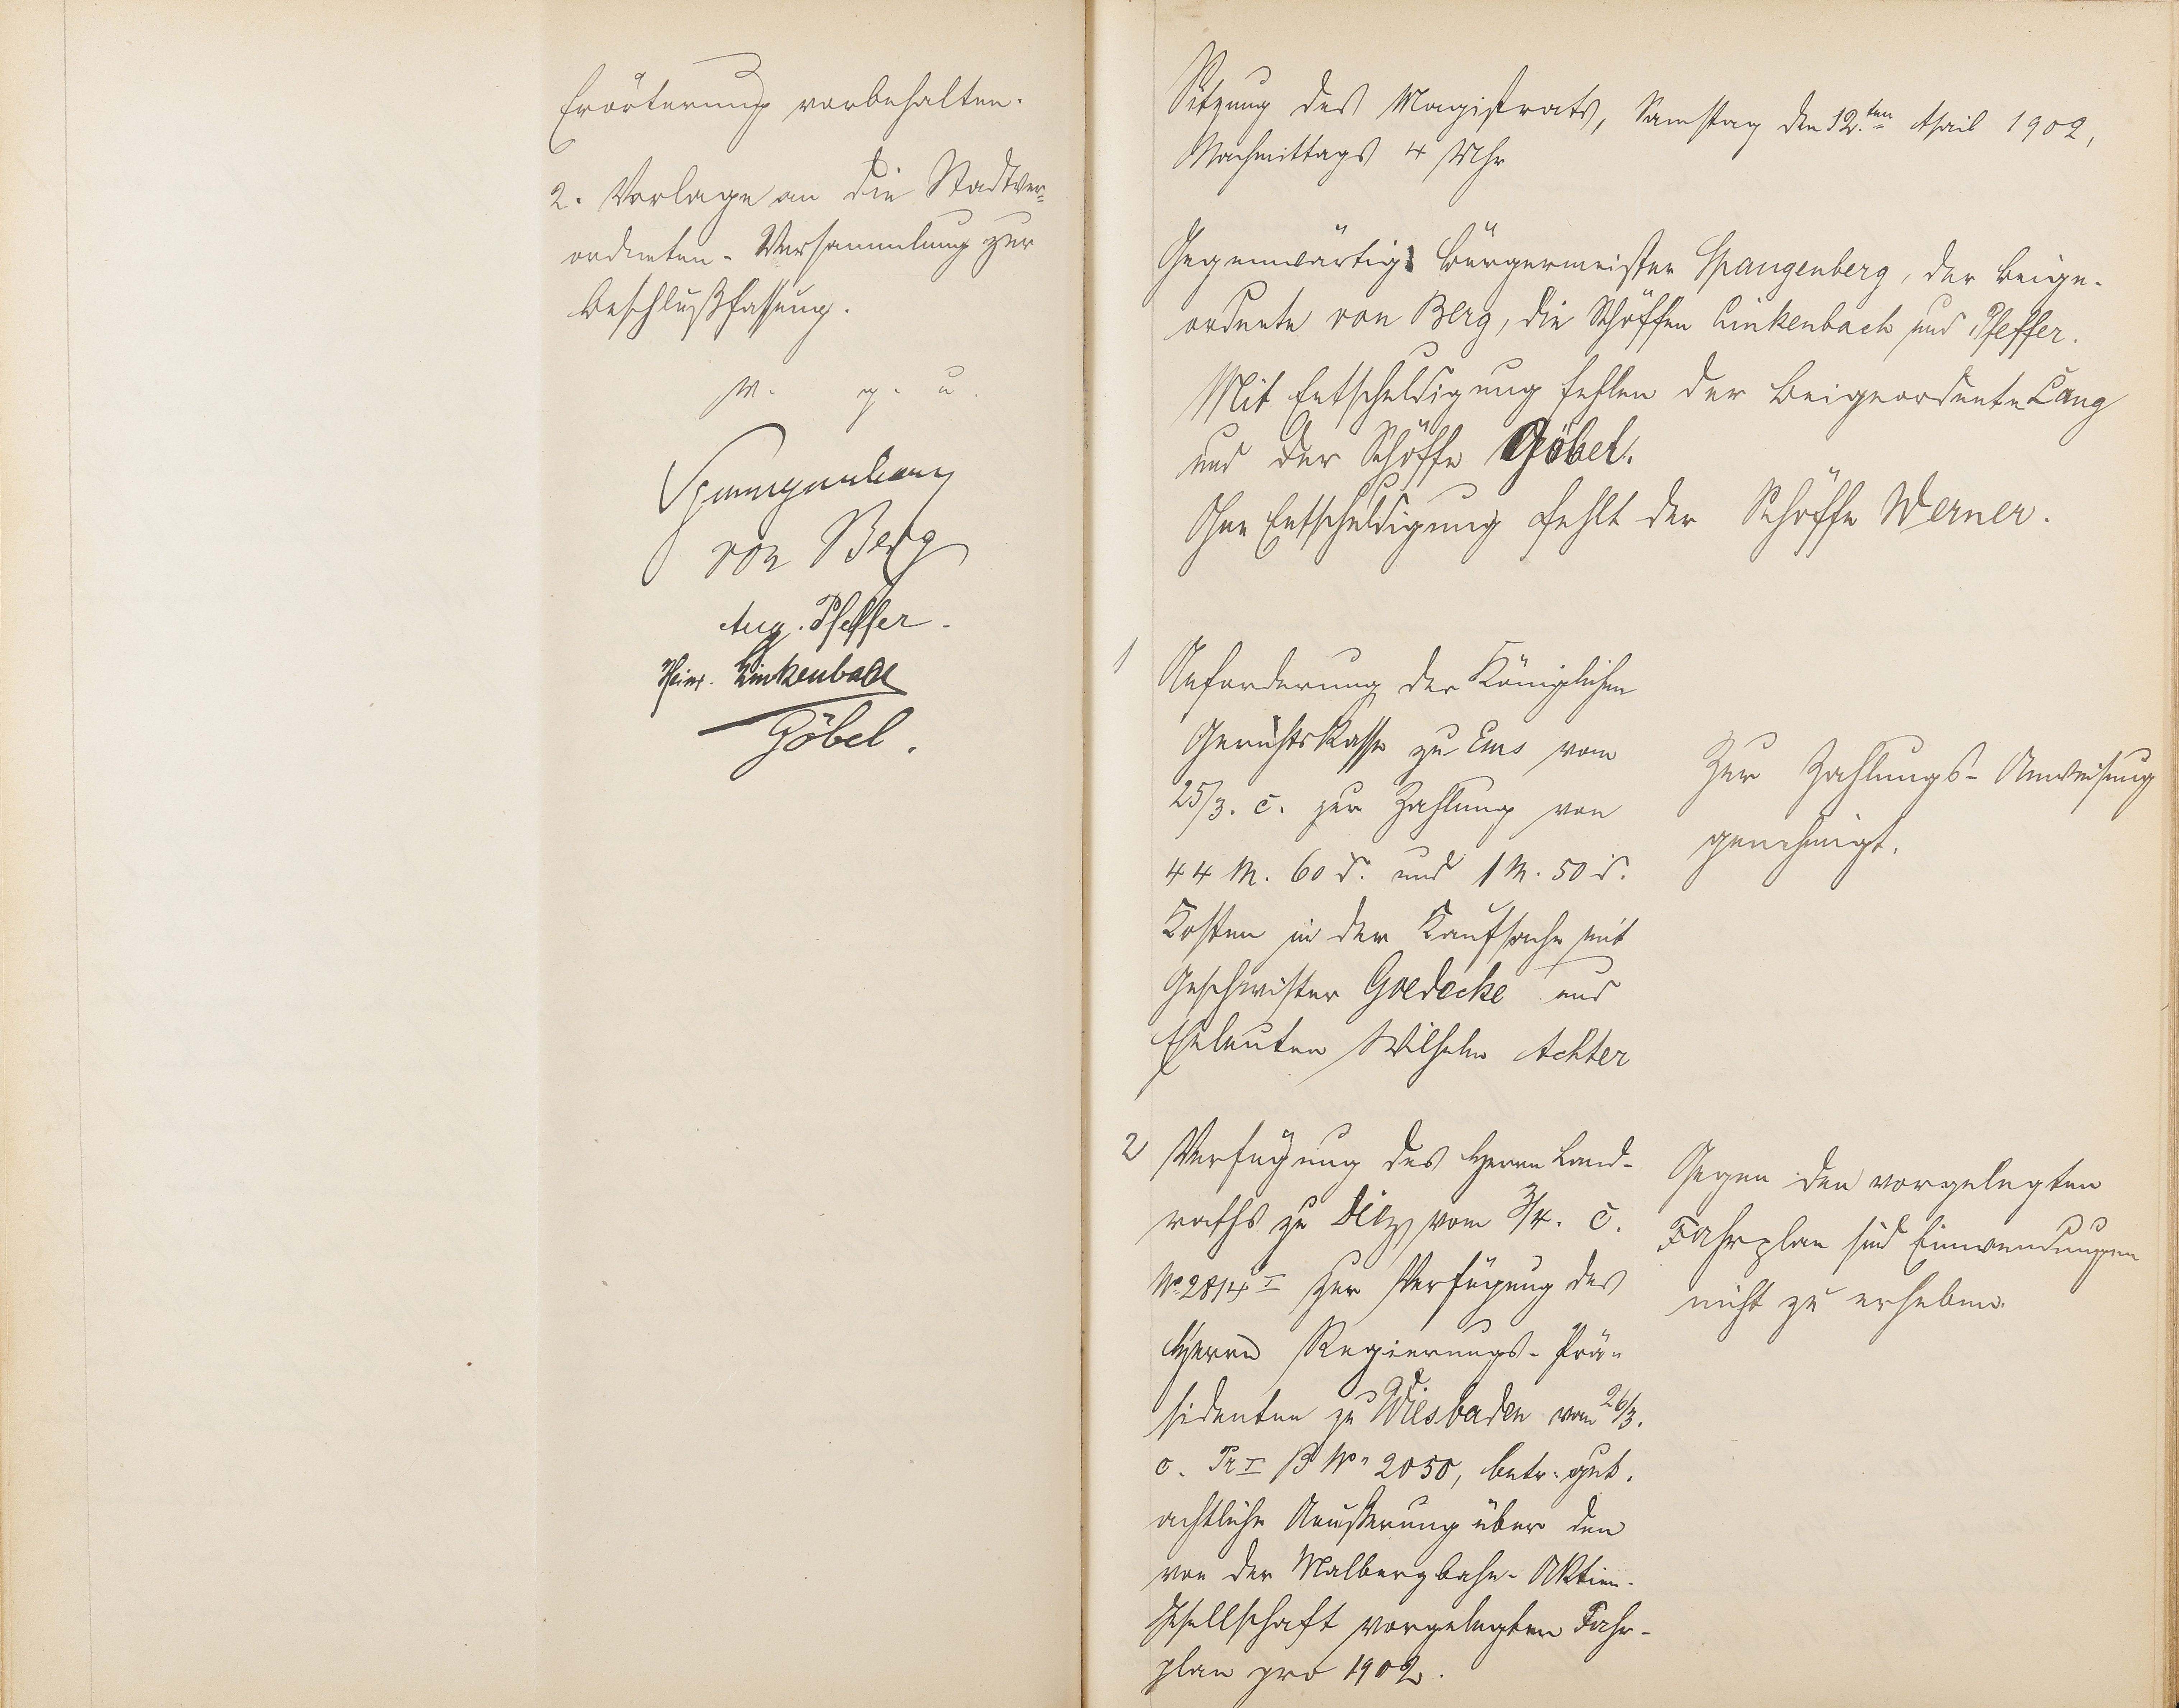 Erörterung vorbehalten.
2. Vorlage an die Stadtver-
ordneten-Versammlung zur
Beschlußfassung.
w. g. u.
Spangenberg
von Berg
Aug. Pfeffer.
Heinr. Linkenbach
Göbel.
Sitzung des Magistrats, Samstag den 12.ten April 1902,
Nachmittags 4 Uhr
Gegenwärtig: Bürgermeister Spangenberg, der Beige-
ordnete von Berg, die Schöffen Linkenbach und Pfeffer.
Mit Entschuldigung fehlen der Beigeordnete Lang
und der Schöffe Göbel.
Ohne Entschuldigung fehlt der Schöffe Werner.
1
Anforderung der Königlichen
Gerichtskasse zu Ems vom
25/3. c. zur Zahlung von
44 M. 60 d. und 1 M. 50 d.
Kosten in der Kaufsache mit
Geschwister Goedecke und
Eheleuten Wilhelm Achter
Zur Zahlungs-Anweisung
genehmigt.
2 Verfügung des Herrn Land-
raths zu Diez vom 3/4. c.
No 2814 I zur Verfügung des
Herrn Regierungs-Prä-
sidenten zu Wiesbaden vom 26/3.
c. Pr I B No 2050, betr. gut-
achtliche Aeußerung über den
von der Malbergbahn-Aktien-
Gesellschaft vorgelegten Fahr-
plan pro 1902.
Gegen den vorgelegten
Fahrplan sind Einwendungen
nicht zu erheben.